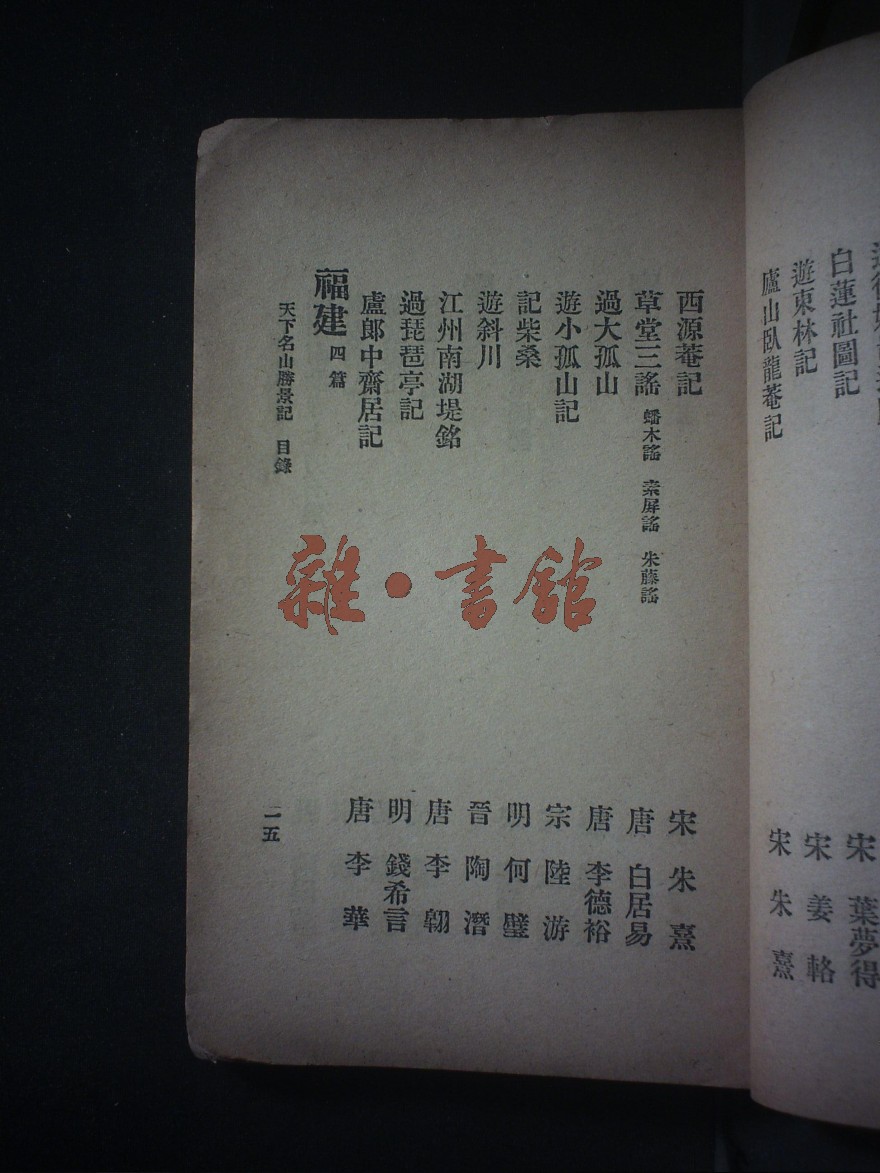 白蓮社圖記 宋 葉夢得
遊東林記 宋 姜輅
廬山臥龍菴記 宋 朱熹
西源菴記 宋 朱熹
草堂三謠 蟠木謠 素屏謠 朱藤謠 唐 白居易
過大孤山 唐 李德裕
遊小孤山記 宗 陸游
記柴桑 明 何璧
遊斜川 晉 陶潛
江州南湖堤銘 唐 李翱
過琵琶亭記 明 錢希言
盧郎中齋居記 唐 李華
福建 四篇
天下名山勝景記 目錄 二五
雜·書館